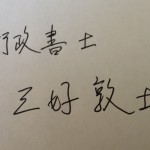 行政書士
三好敦士